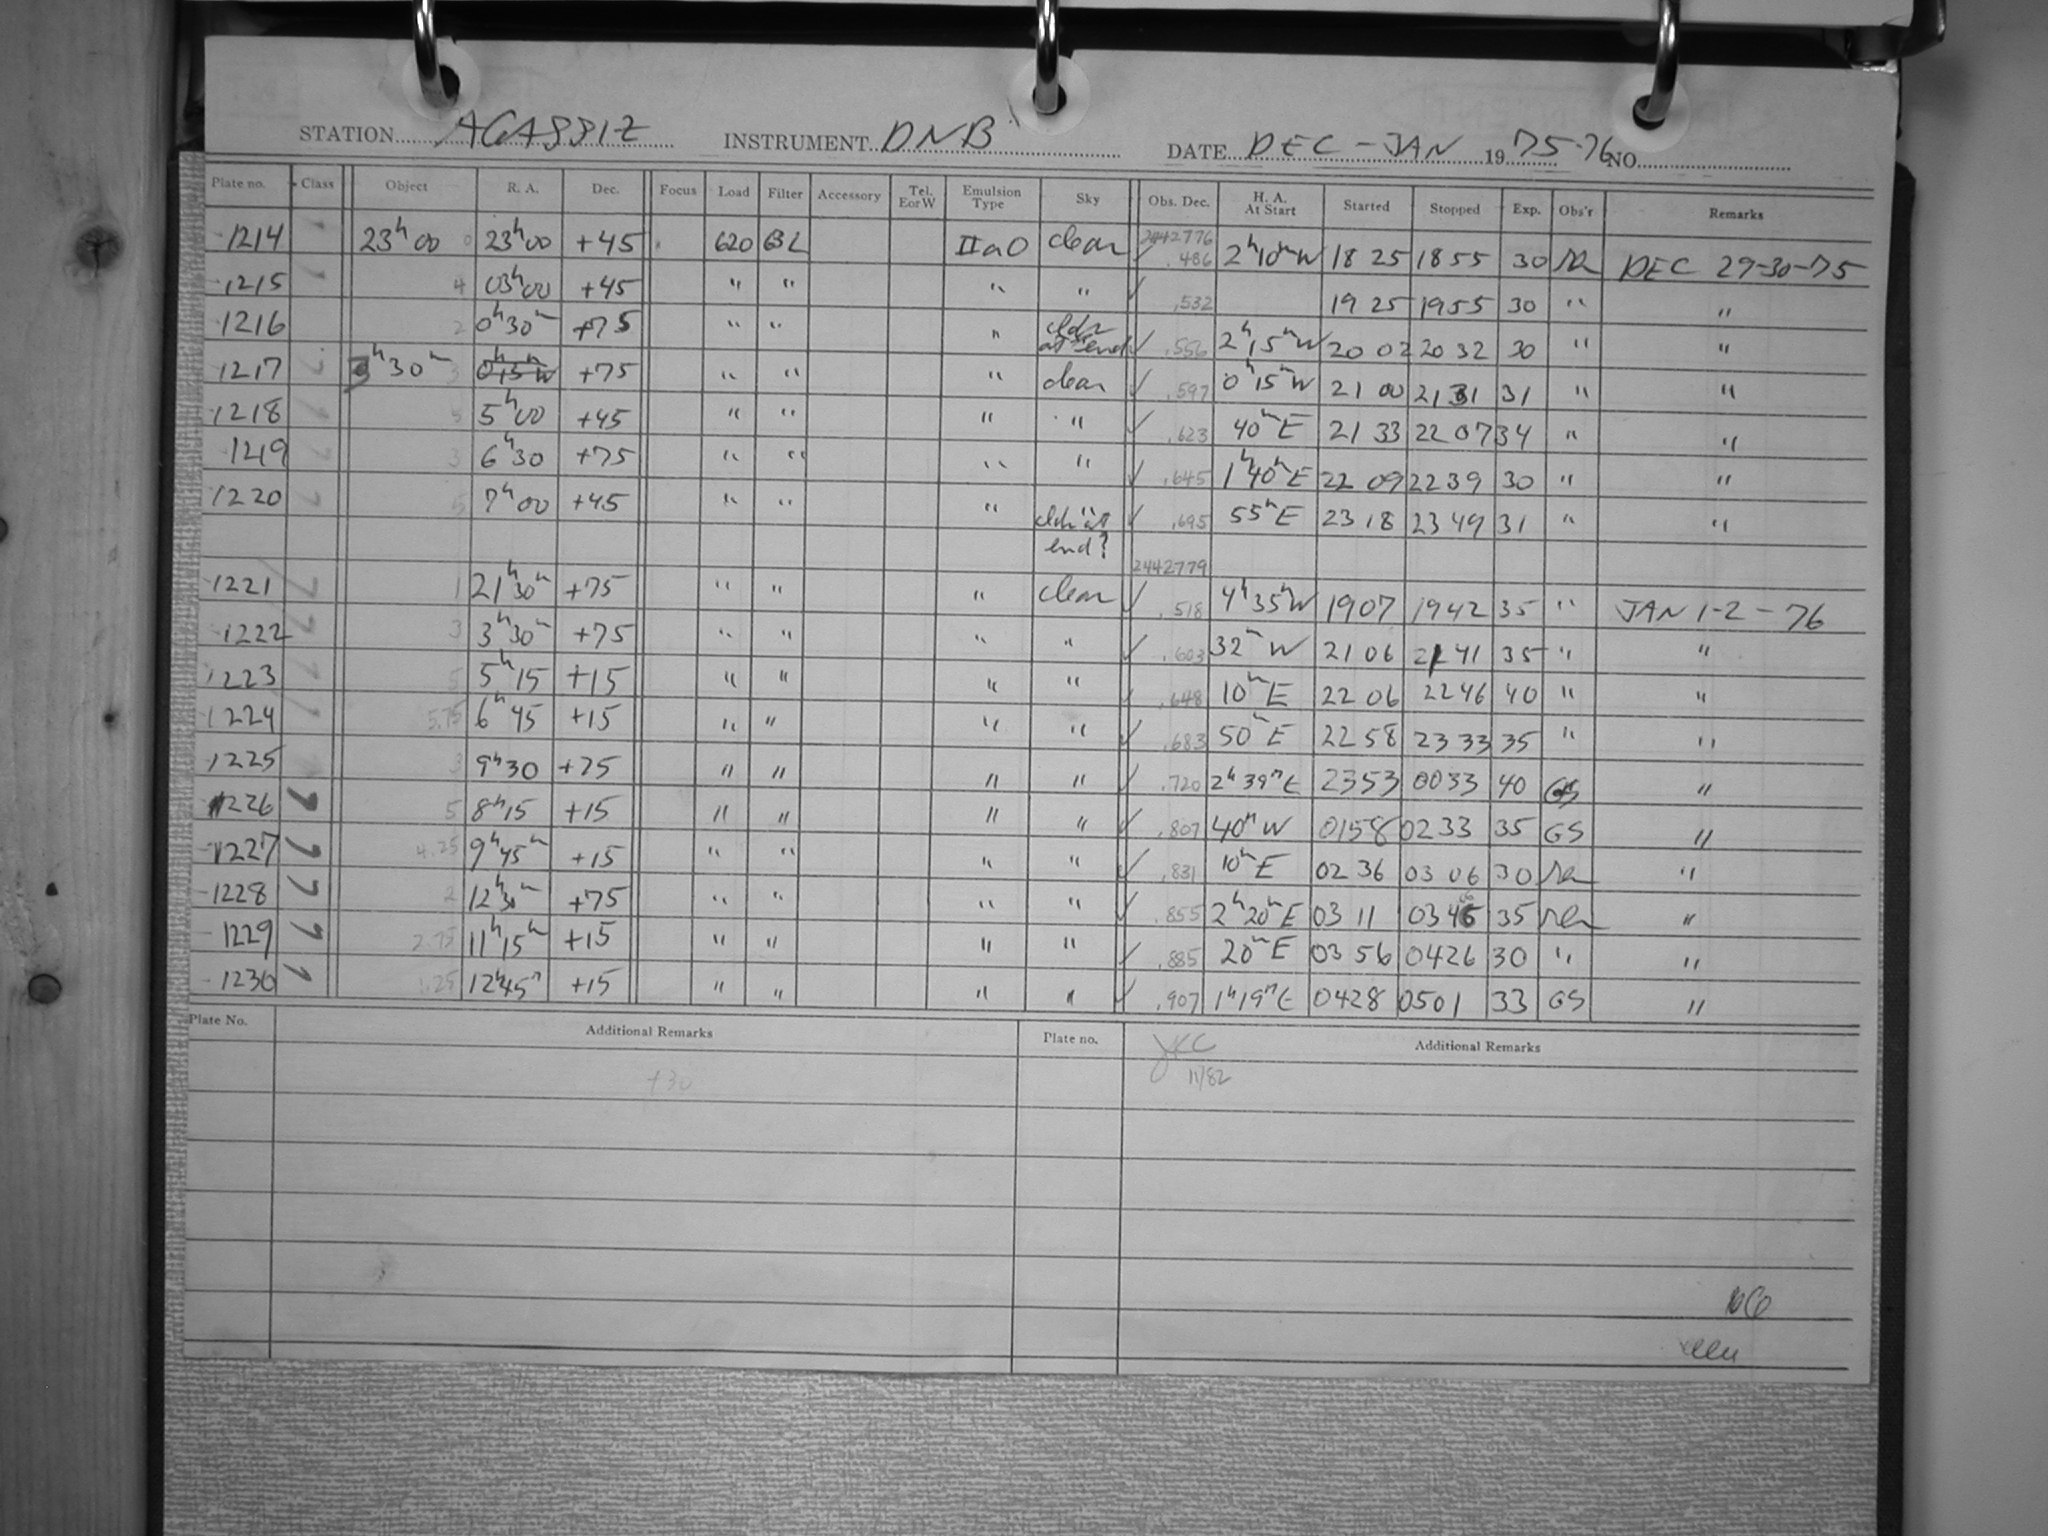 STATION AGASSIZ INSTRUMENT DNB DATE DEC - JAN 1975-76 NO.
Plate no. Class Object R. A. Dec. Focus Load Filter Accessory Tel. E or W Emulsion Type Sky Obs. Dec. H. A. At Start Started Stopped Exp. Obs'r Remarks
1214 23h00 0 23h00 +45 620 GL IIaO clear ✓ 2442776 .486 2h10m W 18 25 18 55 30 DEC 29-30-75
1215 4 03h00 +45 " " " " ✓ .532 19 25 19 55 30 " "
1216 2 0h30m +75 " " " at end ✓ .556 2h15m W 20 02 20 32 30 " "
1217 3h30m 3 0h15m W +75 " " " clear ✓ .597 0h15m W 21 00 21 31 31 " "
1218 5 5h00 +45 " " " " ✓ .623 40m E 21 33 22 07 34 " "
1219 3 6h30 +75 " " " " ✓ .645 1h40m E 22 09 22 39 30 " "
1220 5 7h00 +45 " " " " ✓ .695 55m E 23 18 23 49 31 " "
at end? 2442779
1221 1 21h30m +75 " " " clear ✓ .518 4h35m W 19 07 19 42 35 " JAN 1-2-76
1222 3 3h30m +75 " " " " ✓ .603 32m W 21 06 21 41 35 " "
1223 5 5h15 +15 " " " " ✓ .648 10m E 22 06 22 46 40 " "
1224 5.75 6h45 +15 " " " " ✓ .683 50m E 22 58 23 33 35 " "
1225 3 9h30 +75 " " " " ✓ .720 2h39m E 23 53 00 33 40 GS "
1226 5 8h15 +15 " " " " ✓ .807 40m W 01 58 02 33 35 GS "
1227 4.25 9h45m +15 " " " " ✓ .831 10m E 02 36 03 06 30 "
1228 2 12h30m +75 " " " " ✓ .855 2h20m E 03 11 03 46 35 "
1229 2.75 11h15m +15 " " " " ✓ .885 20m E 03 56 04 26 30 " "
1230 1.25 12h45m +15 " " " " ✓ .907 1h19m E 04 28 05 01 33 GS "
Plate No. Additional Remarks Plate no. Additional Remarks
+30 11/82